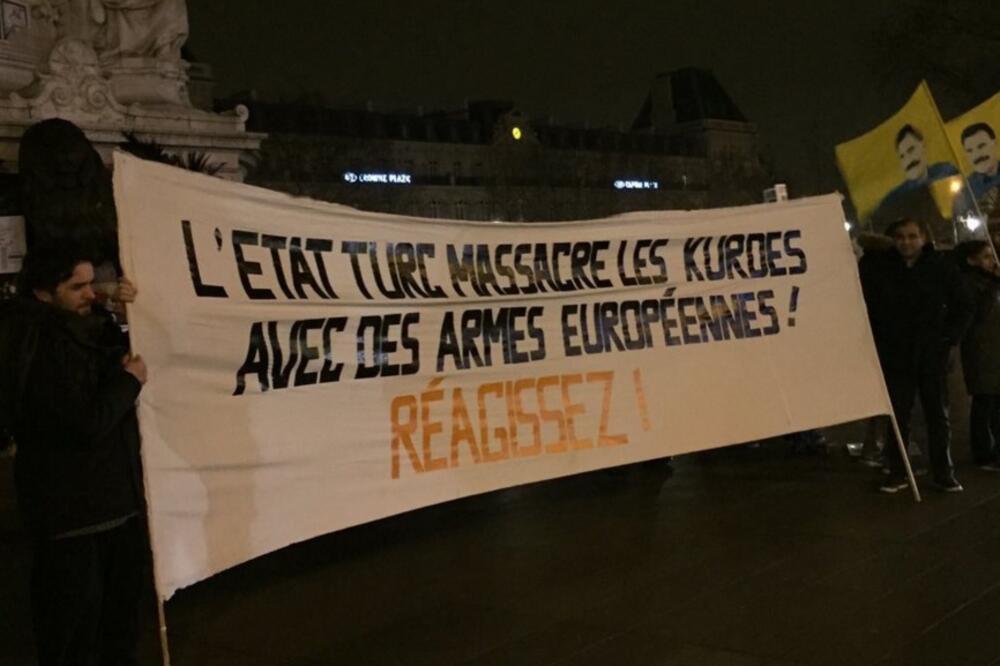 CROWNE PLAZA
L'ETAT TURC MASSACRE LES KURDES
AVEC DES ARMES EUROPÉENNES !
RÉAGISSEZ !